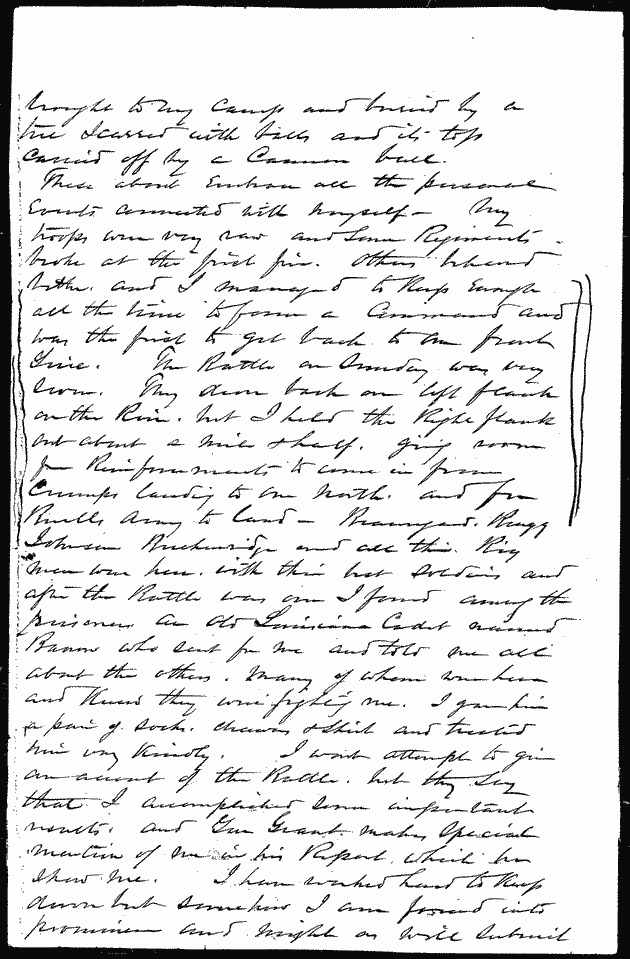 brought to my camp and buried by a
tree scarred with balls and its top
carried off by a Cannon ball.
These about Embrace all the personal
Events connected with myself - My
troops were very raw and Some Regiments
broke at the first fire. Others behaved
better. and I managed to Keep Enough
all the time to form a Command and
was the first to get back to our front
Line. The Battle on Sunday was very
severe. They drove back our left flank
on the River. but I held the Right flank
out about a mile & half. giving room
for Reinforcements to come in from
Crumps landing to our North. and for
Buells Army to land - Beauregard. Bragg
Johnson Breckenridge and all their Big
men were here. with their best soldiers and
after the Battle was over I found among the
prisoners an old Louisiana Cadet named
Barrow who sent for me and told me all
about the others. many of whom were here
and Knew they were fighting me. I gave him
a pair of socks. drawers & Shirt and treated
him very Kindly. I wont attempt to give
an account of the Battle. but they Say
that I accomplished some important
results. and Gen Grant makes Special
mention of me in his Report which he
shew me. I have worked hard to Keep
down but somehow I am forced into
prominence and might as well submit